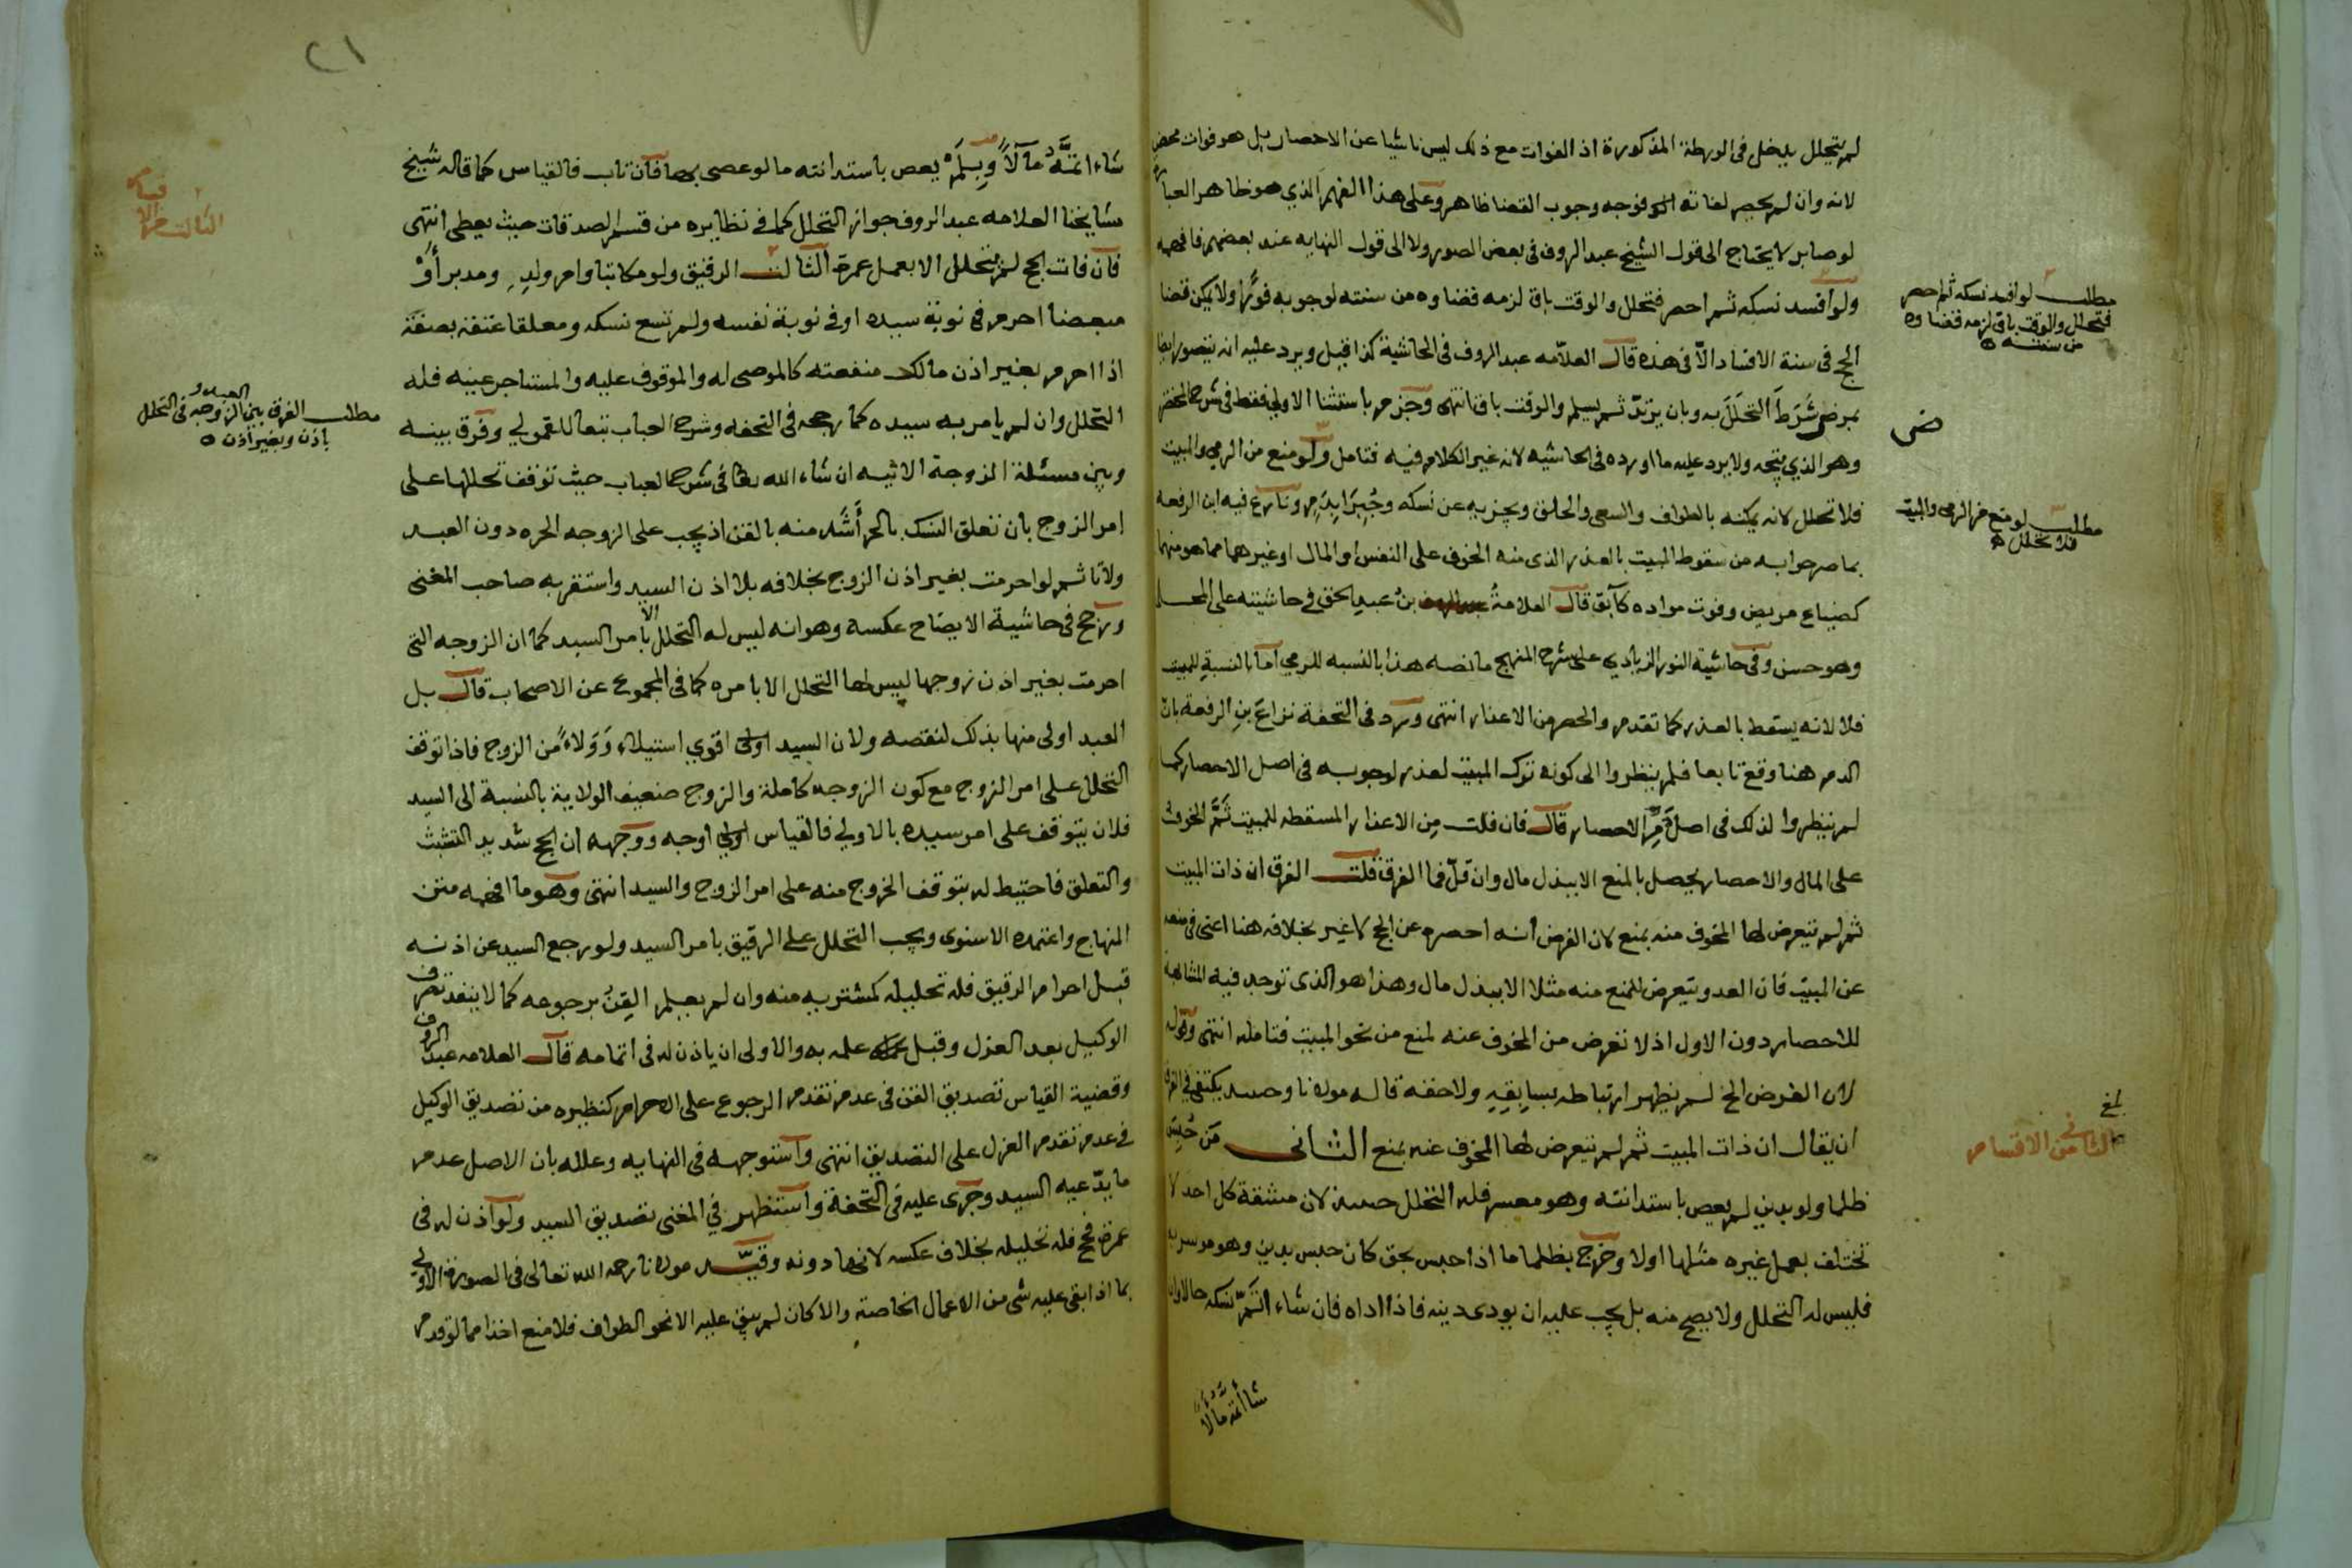 لم يتحلل يدخل في الورطة المذكورة اذ الفوات مع ذلك ليس ناشيا عن الاحصار بل هو فوات محض
لانه وان لم يحصر لفاته الوقوف فوجه وجوب القضا ظاهر وعلى هذا الفهم الذي هو ظاهر العبارة
لو صابر لا يحتاج الى قول الشيخ عبد الروف في بعض الصور ولا الى قول النهايه عند بعضهم فافهمه
ولو افسد نسكه ثم احصر فتحلل والوقت باق لزمه قضاوه من سنته لوجوبه فورًا ولا يمكن قضا
الحج في سنة الافساد الّا في هذه قال العلّامه عبد الروف في الحاشية كذا قيل ويرد عليه انه يتصور ايضا
بمرض شَرَطَ التحَلّلَ به وبان يرتدّ ثم يسلم والوقت باق انتهى وجزم باستثنا الاولى فقط في شرح المختصر
وهو الذي يتجه ولا يرد عليه ما اورده في الحاشيه لانه غير الكلام فيه فتامل ولو منع من الرمي والمبيت
فلا تحلل لانه يمكنه بالطواف والسعي والحلق ويجزيه عن نسكه وجُبِرَا بِدَمٍ ونازع فيه ابن الرفعه
بما صرحوا به من سقوط المبيت بالعذر الذي منه الخوف على النفس او المال او غيرهما مما هو منهما
كضياع مريض وفوت مراده كآبق قال العلامةُ بنُ عبدِ الحق في حاشيته على المحلي
وهو حسن وفي حاشية النور الزيادي على شرح المنهج ما نصه هذا بالنسبه للرمي اما بالنسبةِ للمبيت
فلا لانه يسقط بالعذر كما تقدم والحصر من الاعذار انتهى ورد في التحفة نزاعَ بنِ الرفعة بان
الدم هنا وقع تابعا فلم ينظروا الى كونه ترك المبيت لعذر لوجوبه في اصل الاحصار كما
لم ينظروا لذلك في اصل دَمِ الاحصار قال فان قلت مِن الاعذار المسقطه للمبيت ثَمَّ الخوف
على المال والاحصار يحصل بالمنع الا ببذل مال وان قلّ فما الفرق قلت الفرق ان ذات المبيت
ثم لم يتعرض لها المخوف منه بمنع لان الفرض أنه احصره عن الحج لا غير بخلافه هنا اعني في منعه
عن المبيت فان العدو يتعرض للمنع منه مثلا الا ببذل مال وهذا هو الذي توجد فيه المشابهة
للاحصار دون الاول اذ لا تعرض من المخوف عنه لمنع من نحو المبيت فتامله انتهى وقوله
لان الفرض الخ لم يظهر ارتباطه بسابِقِهِ ولا حقه قاله مولانا وحسبه يكتفي في الفرق
ان يقال ان ذات المبيت ثم لم يتعرض لها المخوف عنه بمنع الثاني مَن حُبِسَ
ظلما ولو بدين لم يعص باستدانته وهو معسر فله التحلل حسبه لان مشقة كل احد لا
تختلف بعمل غيره مثلها اولا وخرج بظلما ما اذا حبس بحق كان حبس بدين وهو موسر به
فليس له التحلل ولا يصح منه بل يجب عليه ان يودي دينه فاذا اداه فان شاء اتمّ نسكه حالا وان
شا أتمه مآلا
مطلب لو افسد نسكه ثم احصر
فتحلل والوقت باق لزمه قضاوه
من سنته
ض
مطلب لو منع من الرمي والمبيت
فلا تحلل
بلغ
الثاني من الاقسام
٢١
شاء اتمَّهُ مآلاً وبِسَلَمْ يعص باستدانته ما لو عصى بها فان تاب فالقياس كما قاله شيخ
مشايخنا العلامه عبد الروف جواز التحلل كما في نظايره من قسم الصدقات حيث يعطى انتهى
فان فات الحج لم يتحلل الا بعمل عمرة الثالث الرقيق ولو مكاتبا وام ولدٍ ومدبر أَوْ
مبعضا احرم في نوبة سيده او في نوبة نفسه ولم تسع نسكه ومعلقا عتقه بصفة
اذا احرم بغير اذن مالك منفعته كالموصى له والموقوف عليه والمستاجر عينه فله
التحلل وان لم يامر به سيده كما رجحه في التحفه وشرح العباب تبعا للقمولي وفرق بينه
وبين مسئلة الزوجة الاتيه ان شاء الله تعا في شرح العباب حيث توقف تحللها على
امر الزوج بان تعلق النسك بالحر أَشَد منه بالقن اذ يجب على الزوجه الحره دون العبد
ولانا ثم لو احرمت بغير اذن الزوج بخلافه بلا اذن السيد واستقر به صاحب المغني
ورجح في حاشية الايضاح عكسه وهو انه ليس له التحلل الا بامر السيد كما ان الزوجه التي
احرمت بغير اذن زوجها ليس لها التحلل الا بامره كما في المجموع عن الاصحاب قال بل
العبد اولى منها بذلك لنقصه ولان السيد اقوي استيلاء وَوَلاءً من الزوج فاذا توقف
التحلل على امر الزوج مع كون الزوجه كاملة والزوج ضعيف الولاية بالنسبة الى السيد
فلان يتوقف على امر سيده بالاولي فالقياس اولي اوجه ووجهه ان الحج شديد التشبث
والتعلق فاحتيط له بتوقف الخروج منه على امر الزوج والسيد انتهى وهو ما افهمه متن
المنهاج واعتمده الاسنوى ويجب التحلل على الرقيق بامر السيد ولو رجع السيد عن اذنه
قبل احرام الرقيق فله تحليله كمشتريه منه وان لم يعلم القِنُ برجوعه كما لا ينفذ تصرف
الوكيل بعد العزل وقبل علمه به والاولى ان ياذن له في اتمامه قال العلامه عبد الروف
وقضية القياس تصديق القن في عدم تقدم الرجوع على الاحرام كنظيره من تصديق الوكيل
في عدم تقدم العزل على التصديق انتهى واستوجهه في النهايه وعلله بان الاصل عدم
ما يدّعيه السيد وجرى عليه في التحفة واستظهر في المغنى تصديق السيد ولو اذن له في
عمرة فحج فله تحليله بخلاف عكسه لانها دونه وقيّده مولانا رحمه الله تعالى في الصورة الاولي
بما اذا بقي عليه شي من الاعمال الخاصة والا كان لم يبق عليه الا نحو الطواف فلا منع اخذا مما لو قدم
الثالث من الا
قسام
مطلب الفرق بين الزوجه
العبد و
في التحلل
باذن وبغير اذن